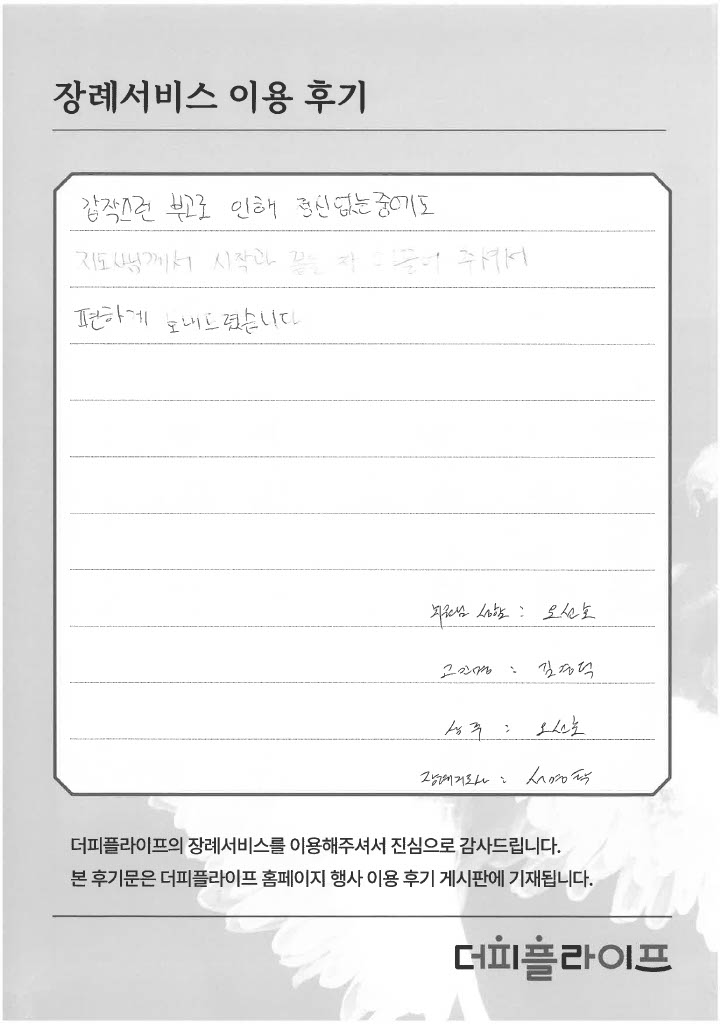 장례서비스 이용 후기
갑작스런 부고로 인해 정신없는중에도
지도사님께서 시작과 끝을 다 주셔서
편하게 보내드렸습니다
회원님 성함 : 오선호
고인명 :
상주 : 오선호
장례지도사 :
더피플라이프의 장례서비스를 이용해주셔서 진심으로 감사드립니다.
본 후기문은 더피플라이프 홈페이지 행사 이용 후기 게시판에 기재됩니다.
더피플라이프